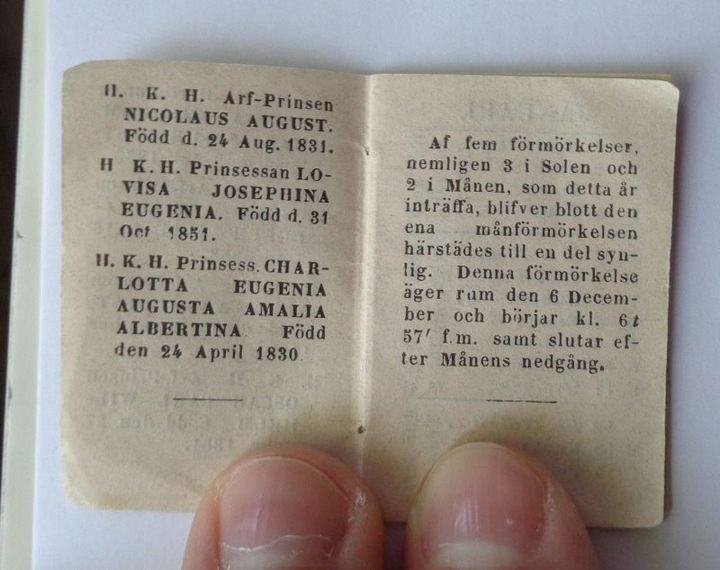 H. K. H. Arf-Prinsen
NICOLAUS AUGUST.
Född d. 24 Aug. 1831.
H K. H. Prinsessan LO-
VISA JOSEPHINA
EUGENIA. Född d. 31
Oct 1851.
H. K. H. Prinsess. CHAR-
LOTTA EUGENIA
AUGUSTA AMALIA
ALBERTINA Född
den 24 April 1830
Af fem förmörkelser,
nemligen 3 i Solen och
2 i Månen, som detta år
inträffa, blifver blott den
ena månförmörkelsen
härstädes till en del syn-
lig. Denna förmörkelse
äger rum den 6 Decem-
ber och börjar kl. 6 t
57′ f.m. samt slutar ef-
ter Månens nedgång.